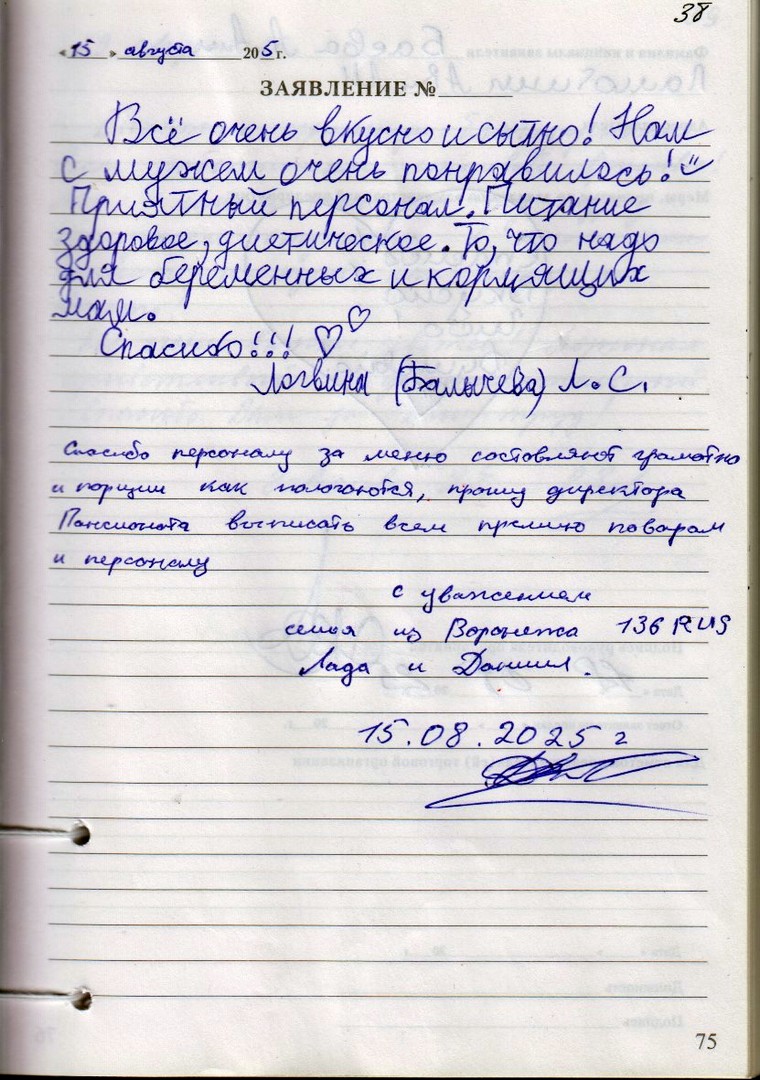 38
« 15 » августа 205 г.
ЗАЯВЛЕНИЕ №
Всё очень вкусно и сытно! Нам
с мужем очень понравилось!
Приятный персонал. Питание
здоровое, диетическое. То, что надо
для беременных и кормящих
мам.
Спасибо!!! ♡♡
Логвина (Балычева) Л. С.
Спасибо персоналу за меню состовляют грамотно
и порции как пологаются, прошу директора
Пансионата выписать всем премию поварам
и персоналу
с уважением
семья из Воронежа 136 RUS
Лада и Даниил.
15.08.2025 г
75